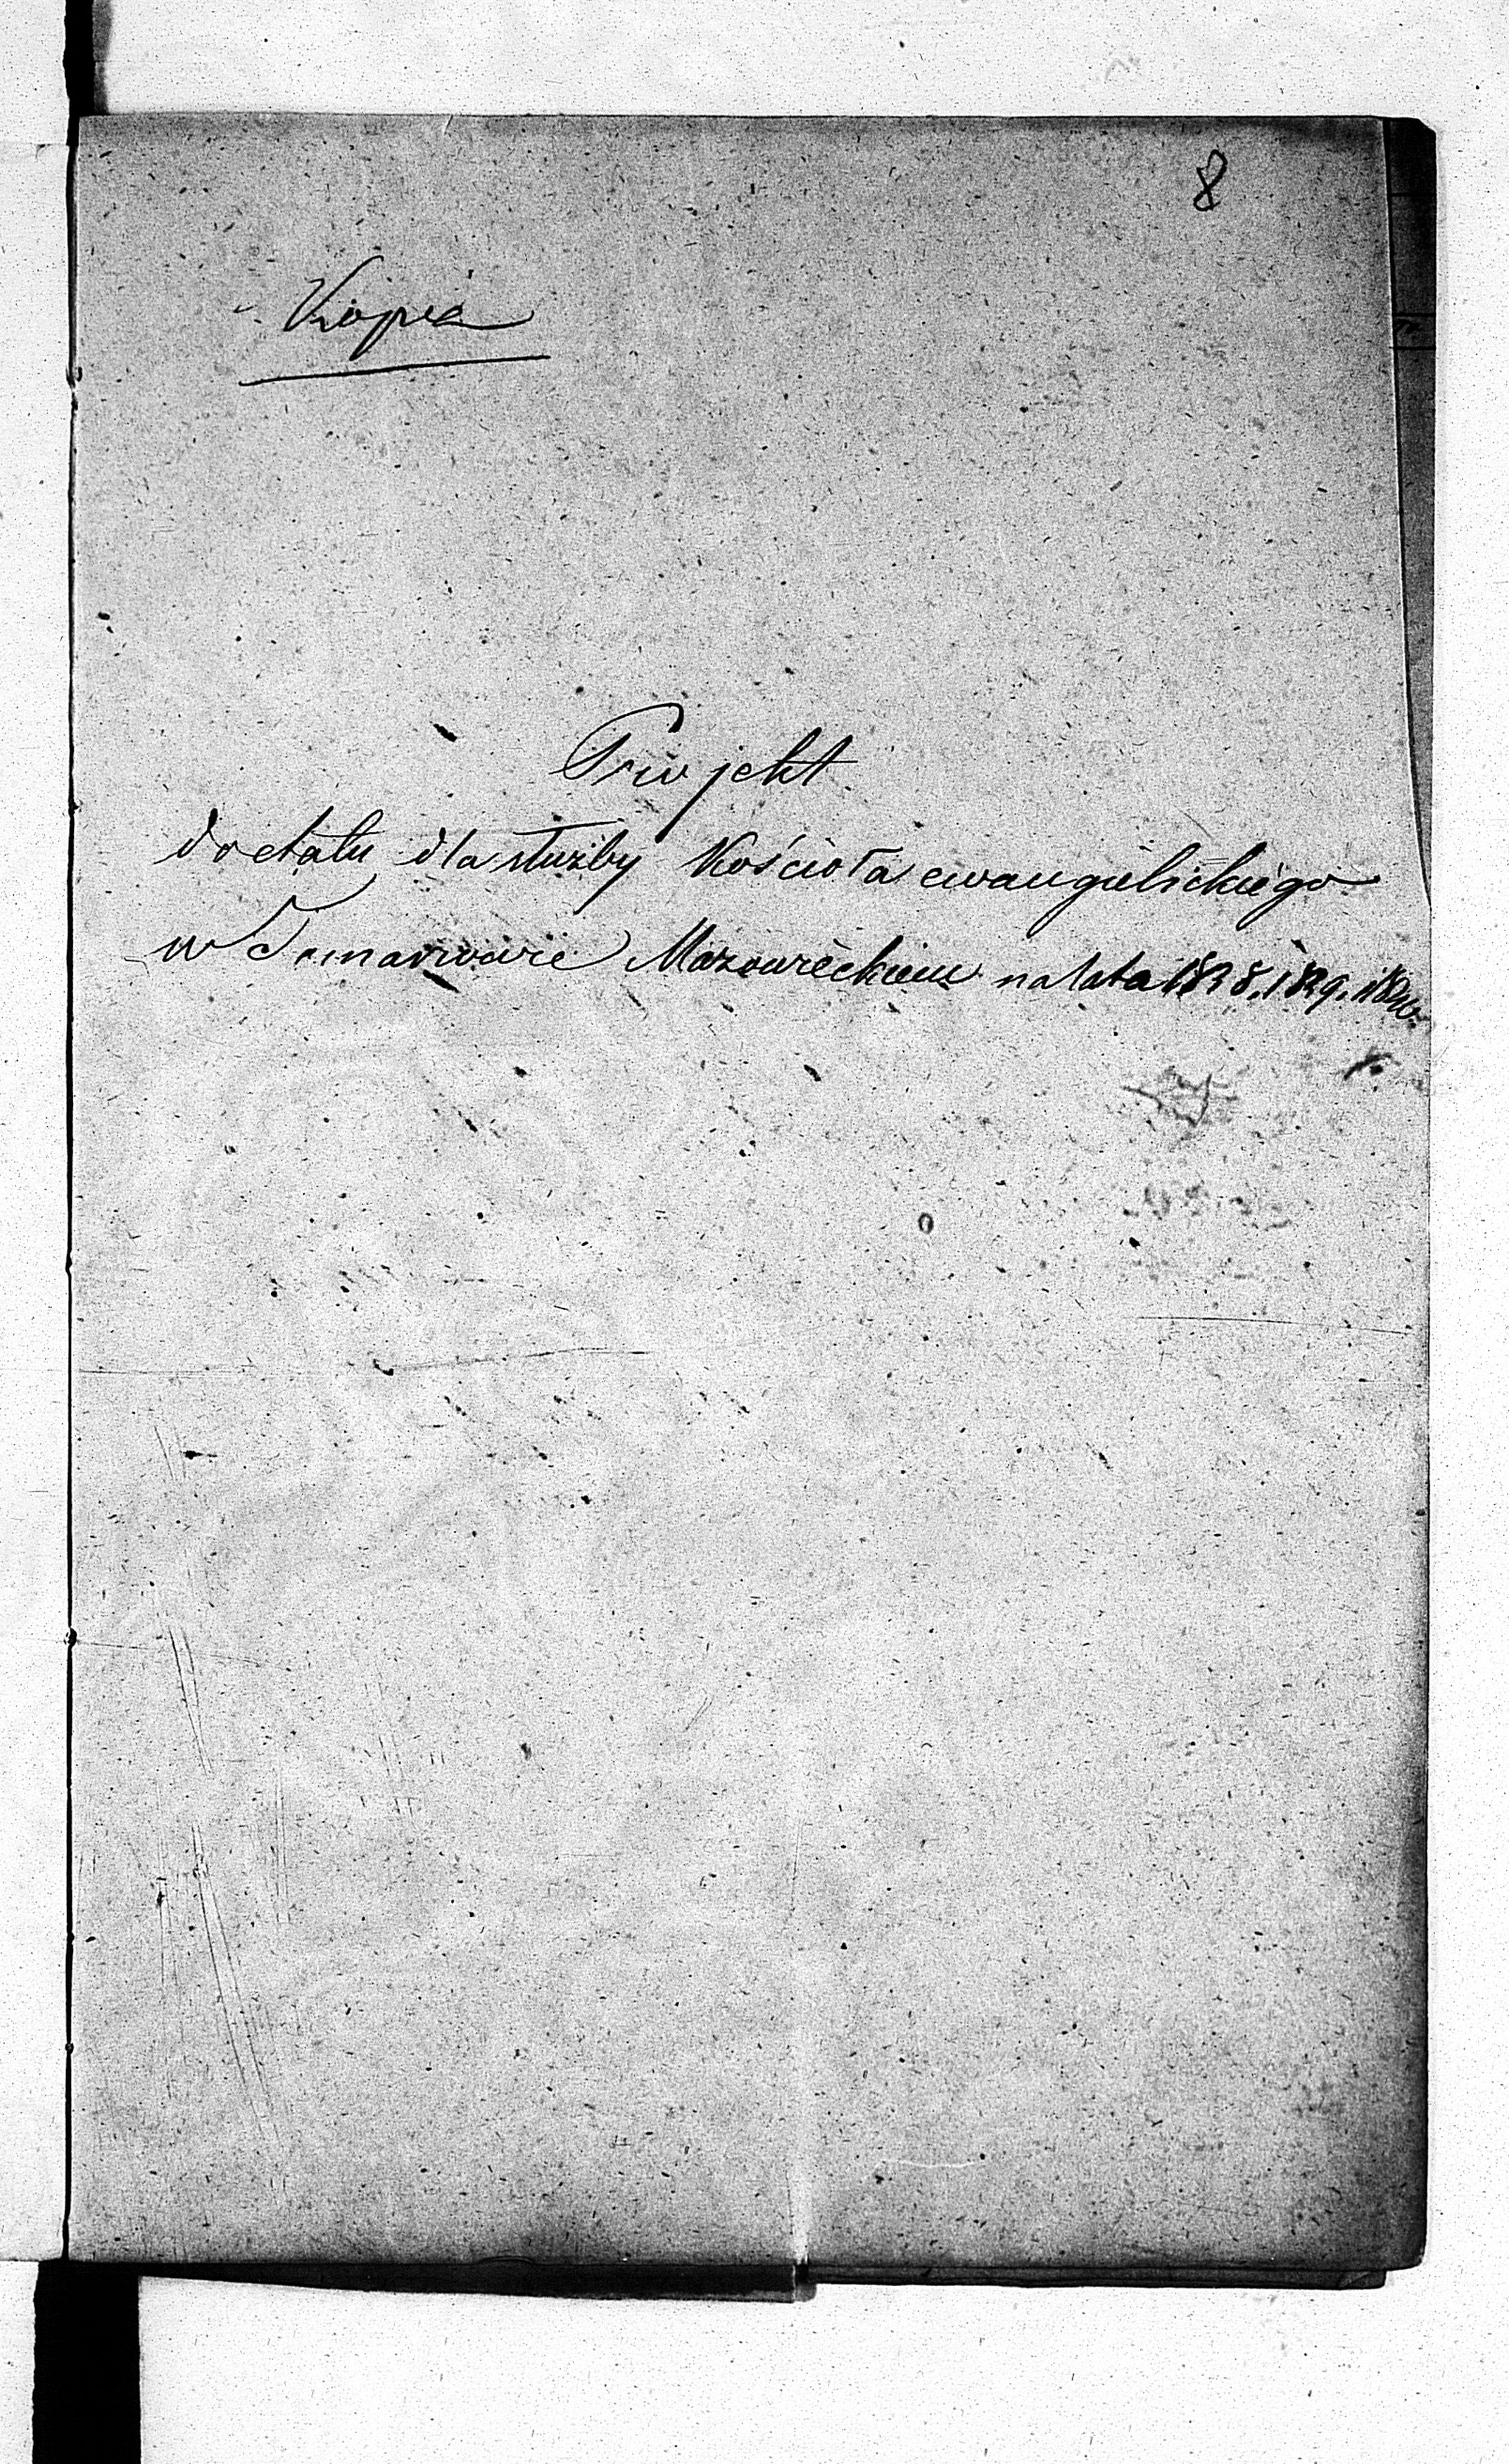 8
Kopia
Projekt
do etatu dla służby Kościoła ewangielickiego
w Tomaszowie Mazowieckiem na lata 1828. 1829.